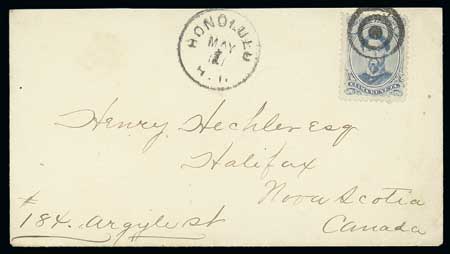 HONOLULU
MAY
H. I.
Henry Hechler Esq
Halifax
Nova Scotia
Canada
# 184. Argyle st